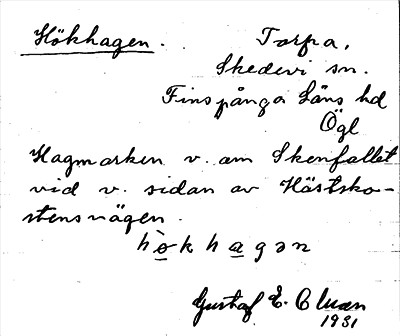 Hökhagen. Torpa,
Skedevi sn.
Finspånga Läns hd
Ögl
Hagmarken v. om Skenfallet
vid v. sidan av Hästsko-
stensvägen.
hò̲k h a̲ gən
Gustaf E. Cluan
1931